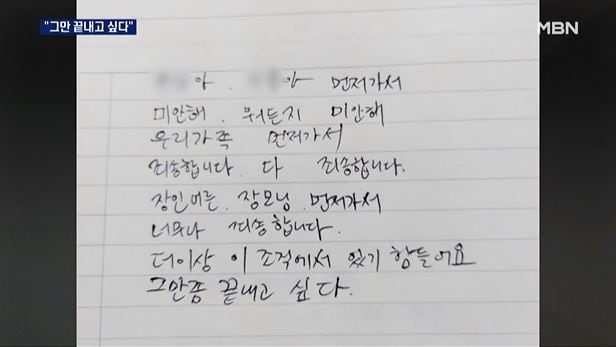 "그만 끝내고 싶다"
MBN
아. 아 먼저가서
미안해. 뭐든지 미안해
우리가족 먼저가서
죄송합니다. 다 죄송합니다.
장인어른. 장모님. 먼저가서
너무나 죄송합니다.
더이상 이 조직에서 있기 힘들어요
그만좀 끝내고 싶다.